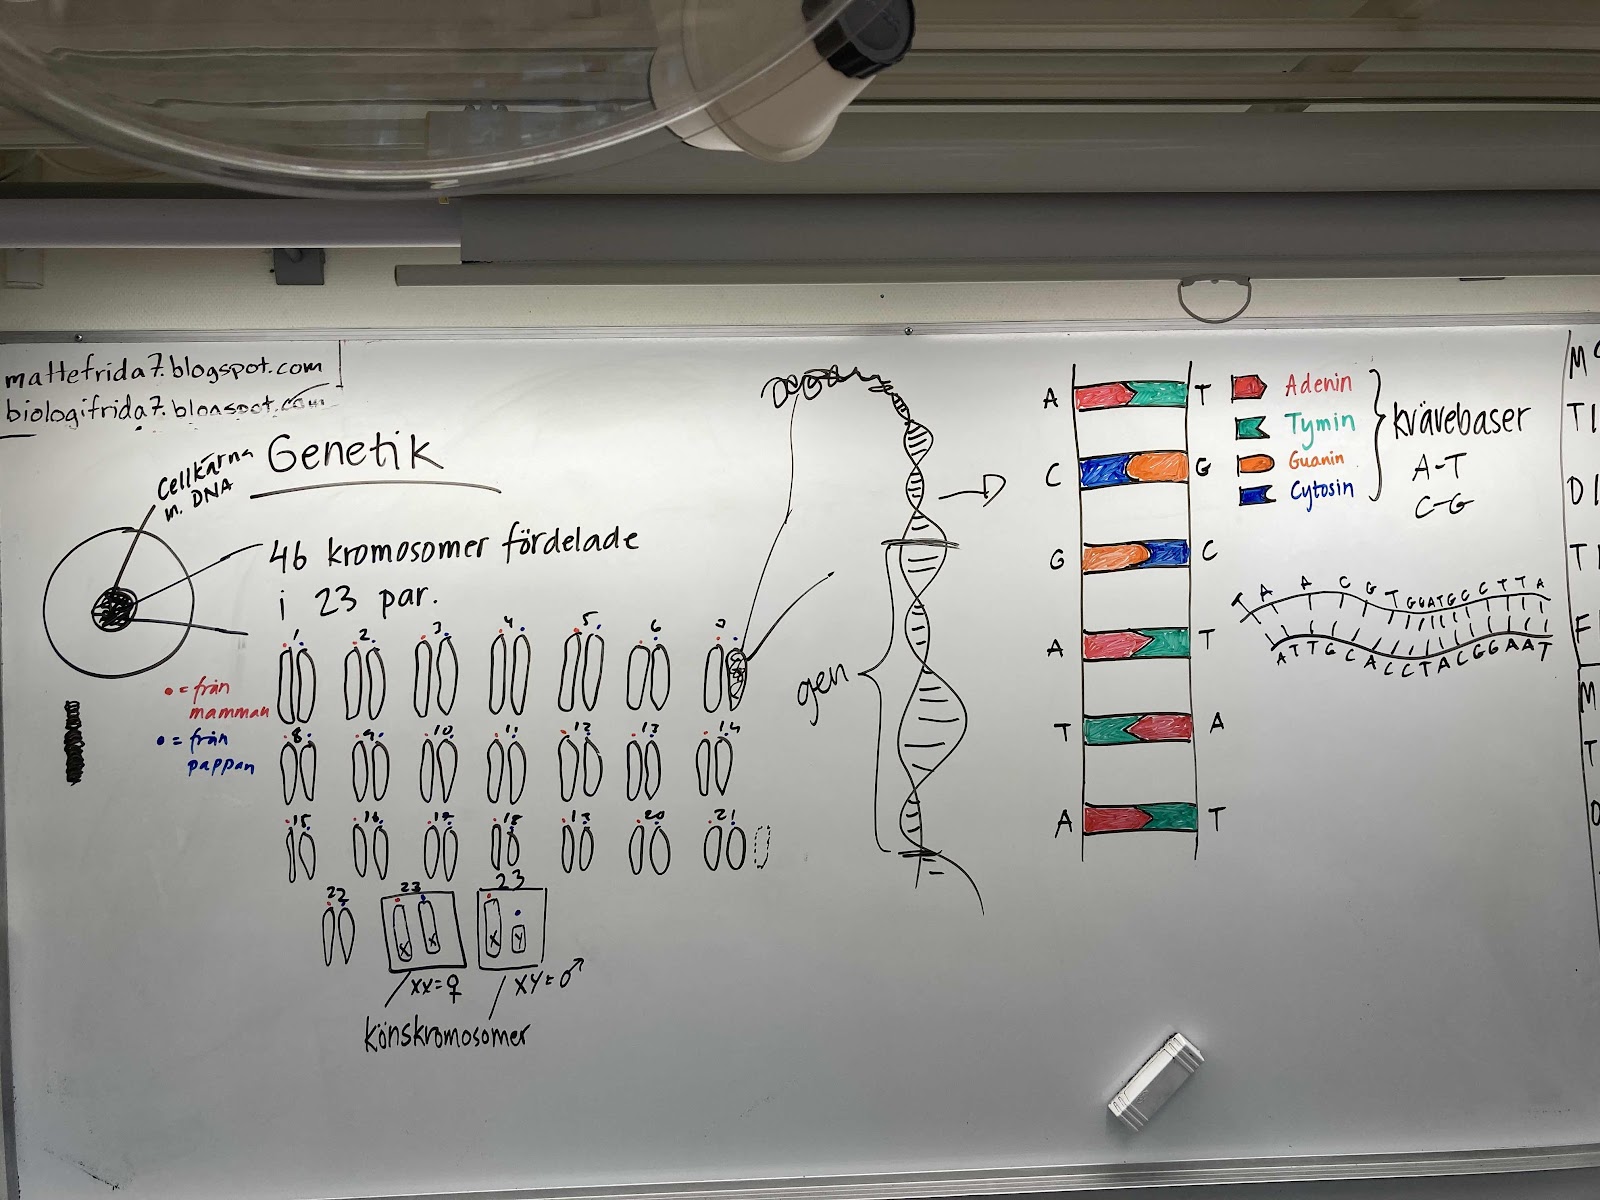 mattefrida7.blogspot.com
biologifrida7.blogspot.com
Genetik
Cellkärna
m. DNA
46 kromosomer fördelade
i 23 par.
• = från
mamman
• = från
pappan
1 2 3 4 5 6
8 9 10 11 12 13 14
15 16 17 18 19 20 21
22 23 23
X X X Y
XX=♀ XY=♂
könskromosomer
gen
A T
C G
G C
A T
T A
A T
Adenin
Tymin
Guanin
Cytosin
Kvävebaser
A-T
C-G
T A A C G T G G A T G C C T T A
A T T G C A C C T A C G G A A T
M
TI
DI
T
F
M
T